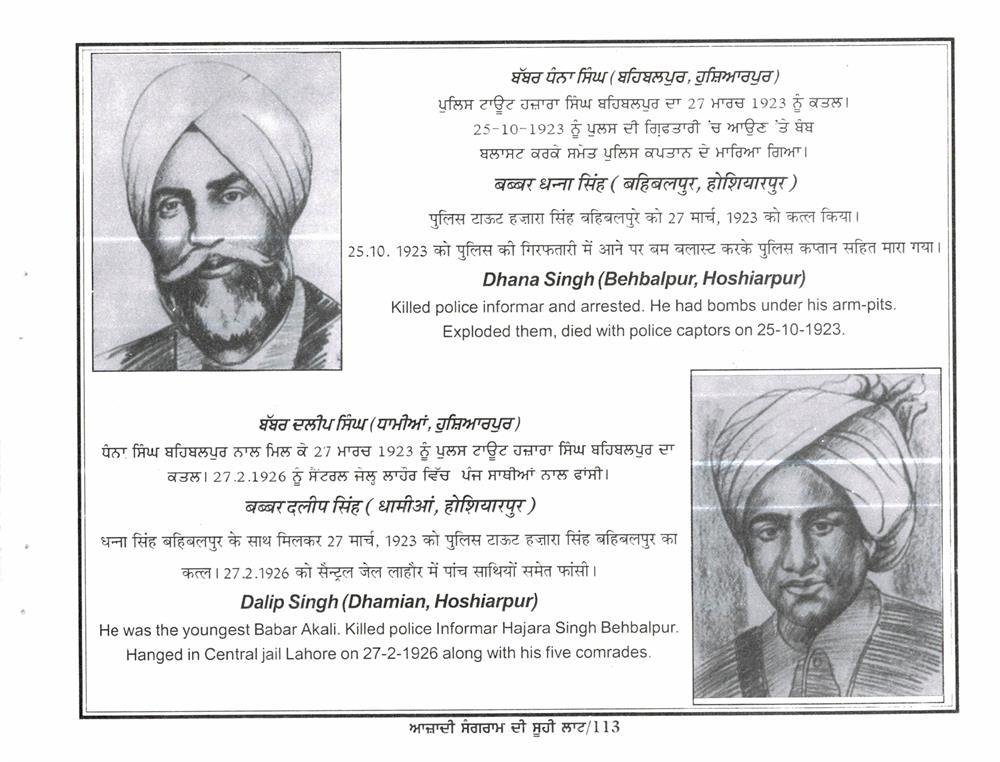 ਬੱਬਰ ਧੰਨਾ ਸਿੰਘ (ਬਹਿਬਲਪੁਰ, ਹੁਸ਼ਿਆਰਪੁਰ)
ਪੁਲਿਸ ਟਾਊਟ ਹਜ਼ਾਰਾ ਸਿੰਘ ਬਹਿਬਲਪੁਰ ਦਾ 27 ਮਾਰਚ 1923 ਨੂੰ ਕਤਲ।
25-10-1923 ਨੂੰ ਪੁਲਸ ਦੀ ਗ੍ਰਿਫਤਾਰੀ 'ਚ ਆਉਣ 'ਤੇ ਬੰਬ
ਬਲਾਸਟ ਕਰਕੇ ਸਮੇਤ ਪੁਲਿਸ ਕਪਤਾਨ ਦੇ ਮਾਰਿਆ ਗਿਆ।
बब्बर धन्ना सिंह ( बहिबलपुर, होशियारपुर )
पुलिस टाऊट हज़ारा सिंह बहिबलपुरे को 27 मार्च, 1923 को कत्ल किया।
25.10. 1923 को पुलिस की गिरफतारी में आने पर बम बलास्ट करके पुलिस कप्तान सहित मारा गया।
Dhana Singh (Behbalpur, Hoshiarpur)
Killed police informar and arrested. He had bombs under his arm-pits.
Exploded them, died with police captors on 25-10-1923.
ਬੱਬਰ ਦਲੀਪ ਸਿੰਘ (ਧਾਮੀਆਂ, ਹੁਸ਼ਿਆਰਪੁਰ)
ਧੰਨਾ ਸਿੰਘ ਬਹਿਬਲਪੁਰ ਨਾਲ ਮਿਲ ਕੇ 27 ਮਾਰਚ 1923 ਨੂੰ ਪੁਲਸ ਟਾਊਟ ਹਜ਼ਾਰਾ ਸਿੰਘ ਬਹਿਬਲਪੁਰ ਦਾ
ਕਤਲ। 27.2.1926 ਨੂੰ ਸੈਂਟਰਲ ਜੇਲ੍ਹ ਲਾਹੌਰ ਵਿੱਚ ਪੰਜ ਸਾਥੀਆਂ ਨਾਲ ਫਾਂਸੀ।
बब्बर दलीप सिंह ( धामीआं, होशियारपुर )
धन्ना सिंह बहिबलपुर के साथ मिलकर 27 मार्च, 1923 को पुलिस टाऊट हज़ारा सिंह बहिबलपुर का
कत्ल। 27.2.1926 को सैन्ट्रल जेल लाहौर में पांच साथियों समेत फांसी।
Dalip Singh (Dhamian, Hoshiarpur)
He was the youngest Babar Akali. Killed police Informar Hajara Singh Behbalpur.
Hanged in Central jail Lahore on 27-2-1926 along with his five comrades.
ਆਜ਼ਾਦੀ ਸੰਗਰਾਮ ਦੀ ਸੂਹੀ ਲਾਟ/113